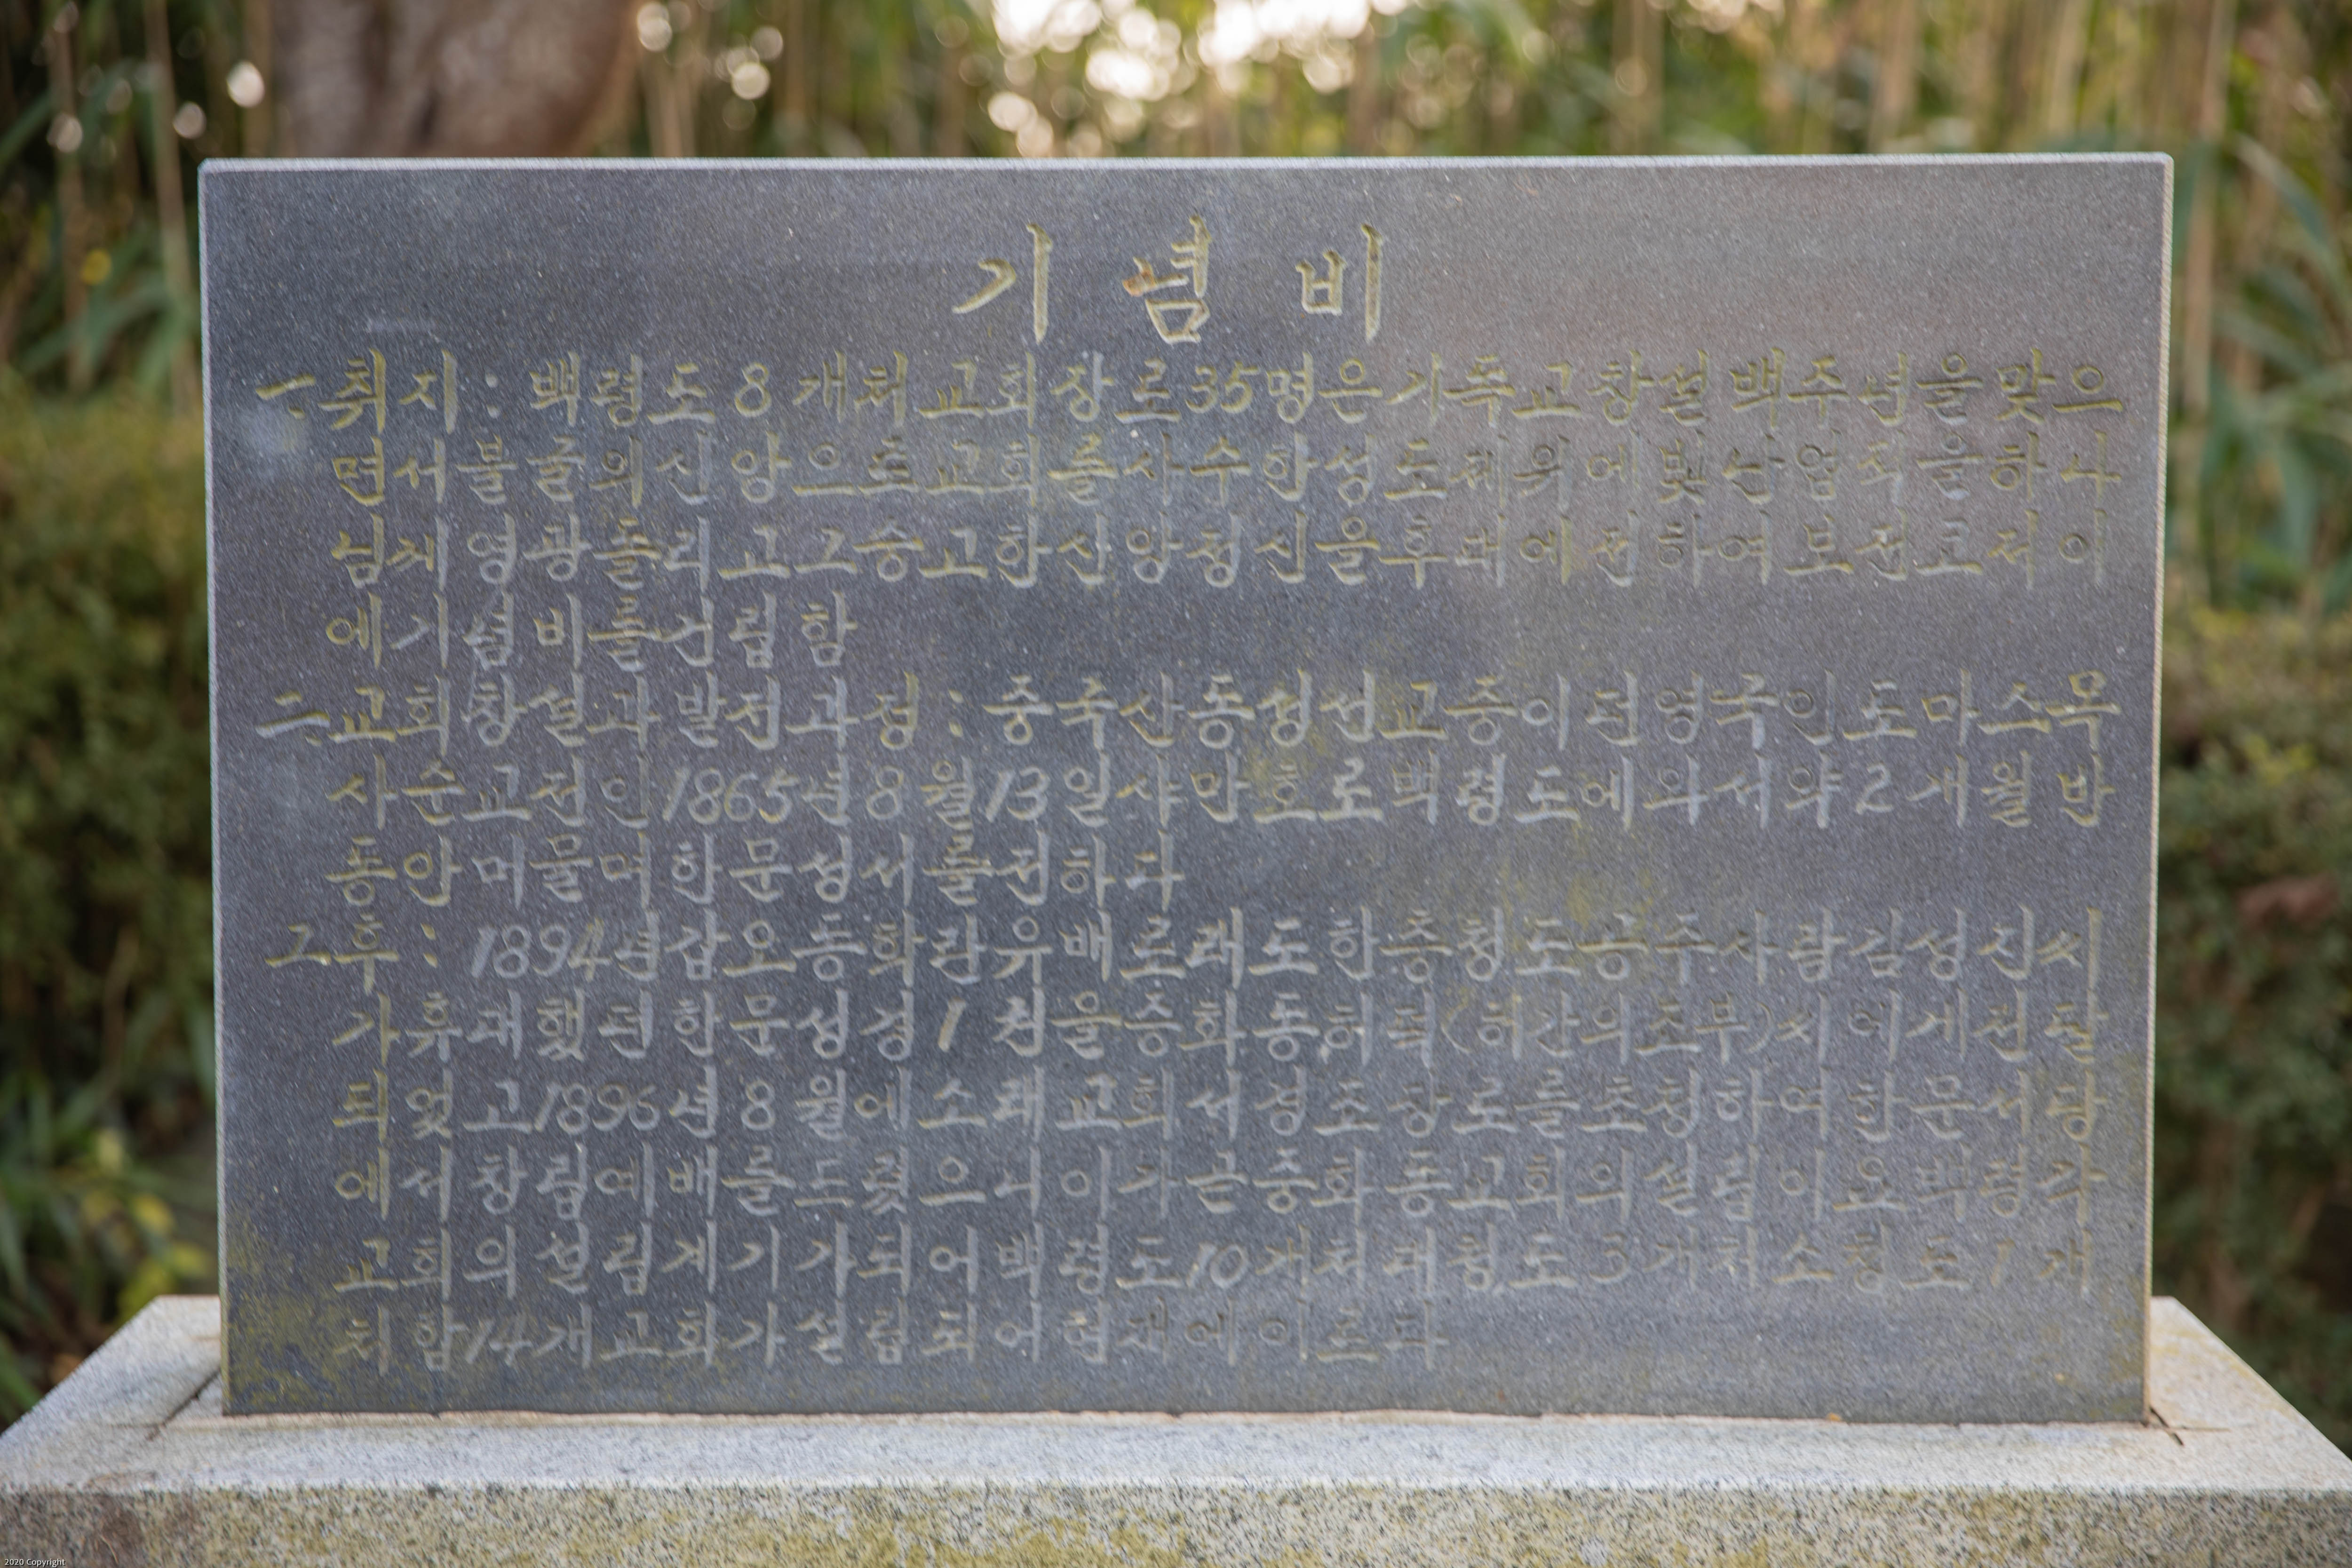 기 념 비
一. 취지: 백령도 8 개처교회장로35명은기독교창설백주년을맞으
면서불굴의신앙으로교회를사수한성도제위에빛난업적을하나
님께영광돌리고그숭고한신앙정신을후대에전하여보전고저이
에기념비를건립함
二. 교회창설과발전과정: 중국산동성선교중이던영국인도마스목
사순교전인1865년8월13일샤만호로백령도에와서약2개월반
동안머물며한문성서를전하다
그후: 1894년갑오동학란유배로래도한충청도공주사람김성진씨
가휴대했던한문성경1권을중화동허득(허간의조부)씨에게전달
되었고1896년8월에소래교회서경조장로를초청하여한문서당
에서창립예배를드렸으니이가곧중화동교회의설립이요백령각
교회의설립계기가되어백령도10개처대청도3개처소청도1개
처합14개교회가설립되어현재에이르다
2020 Copyright